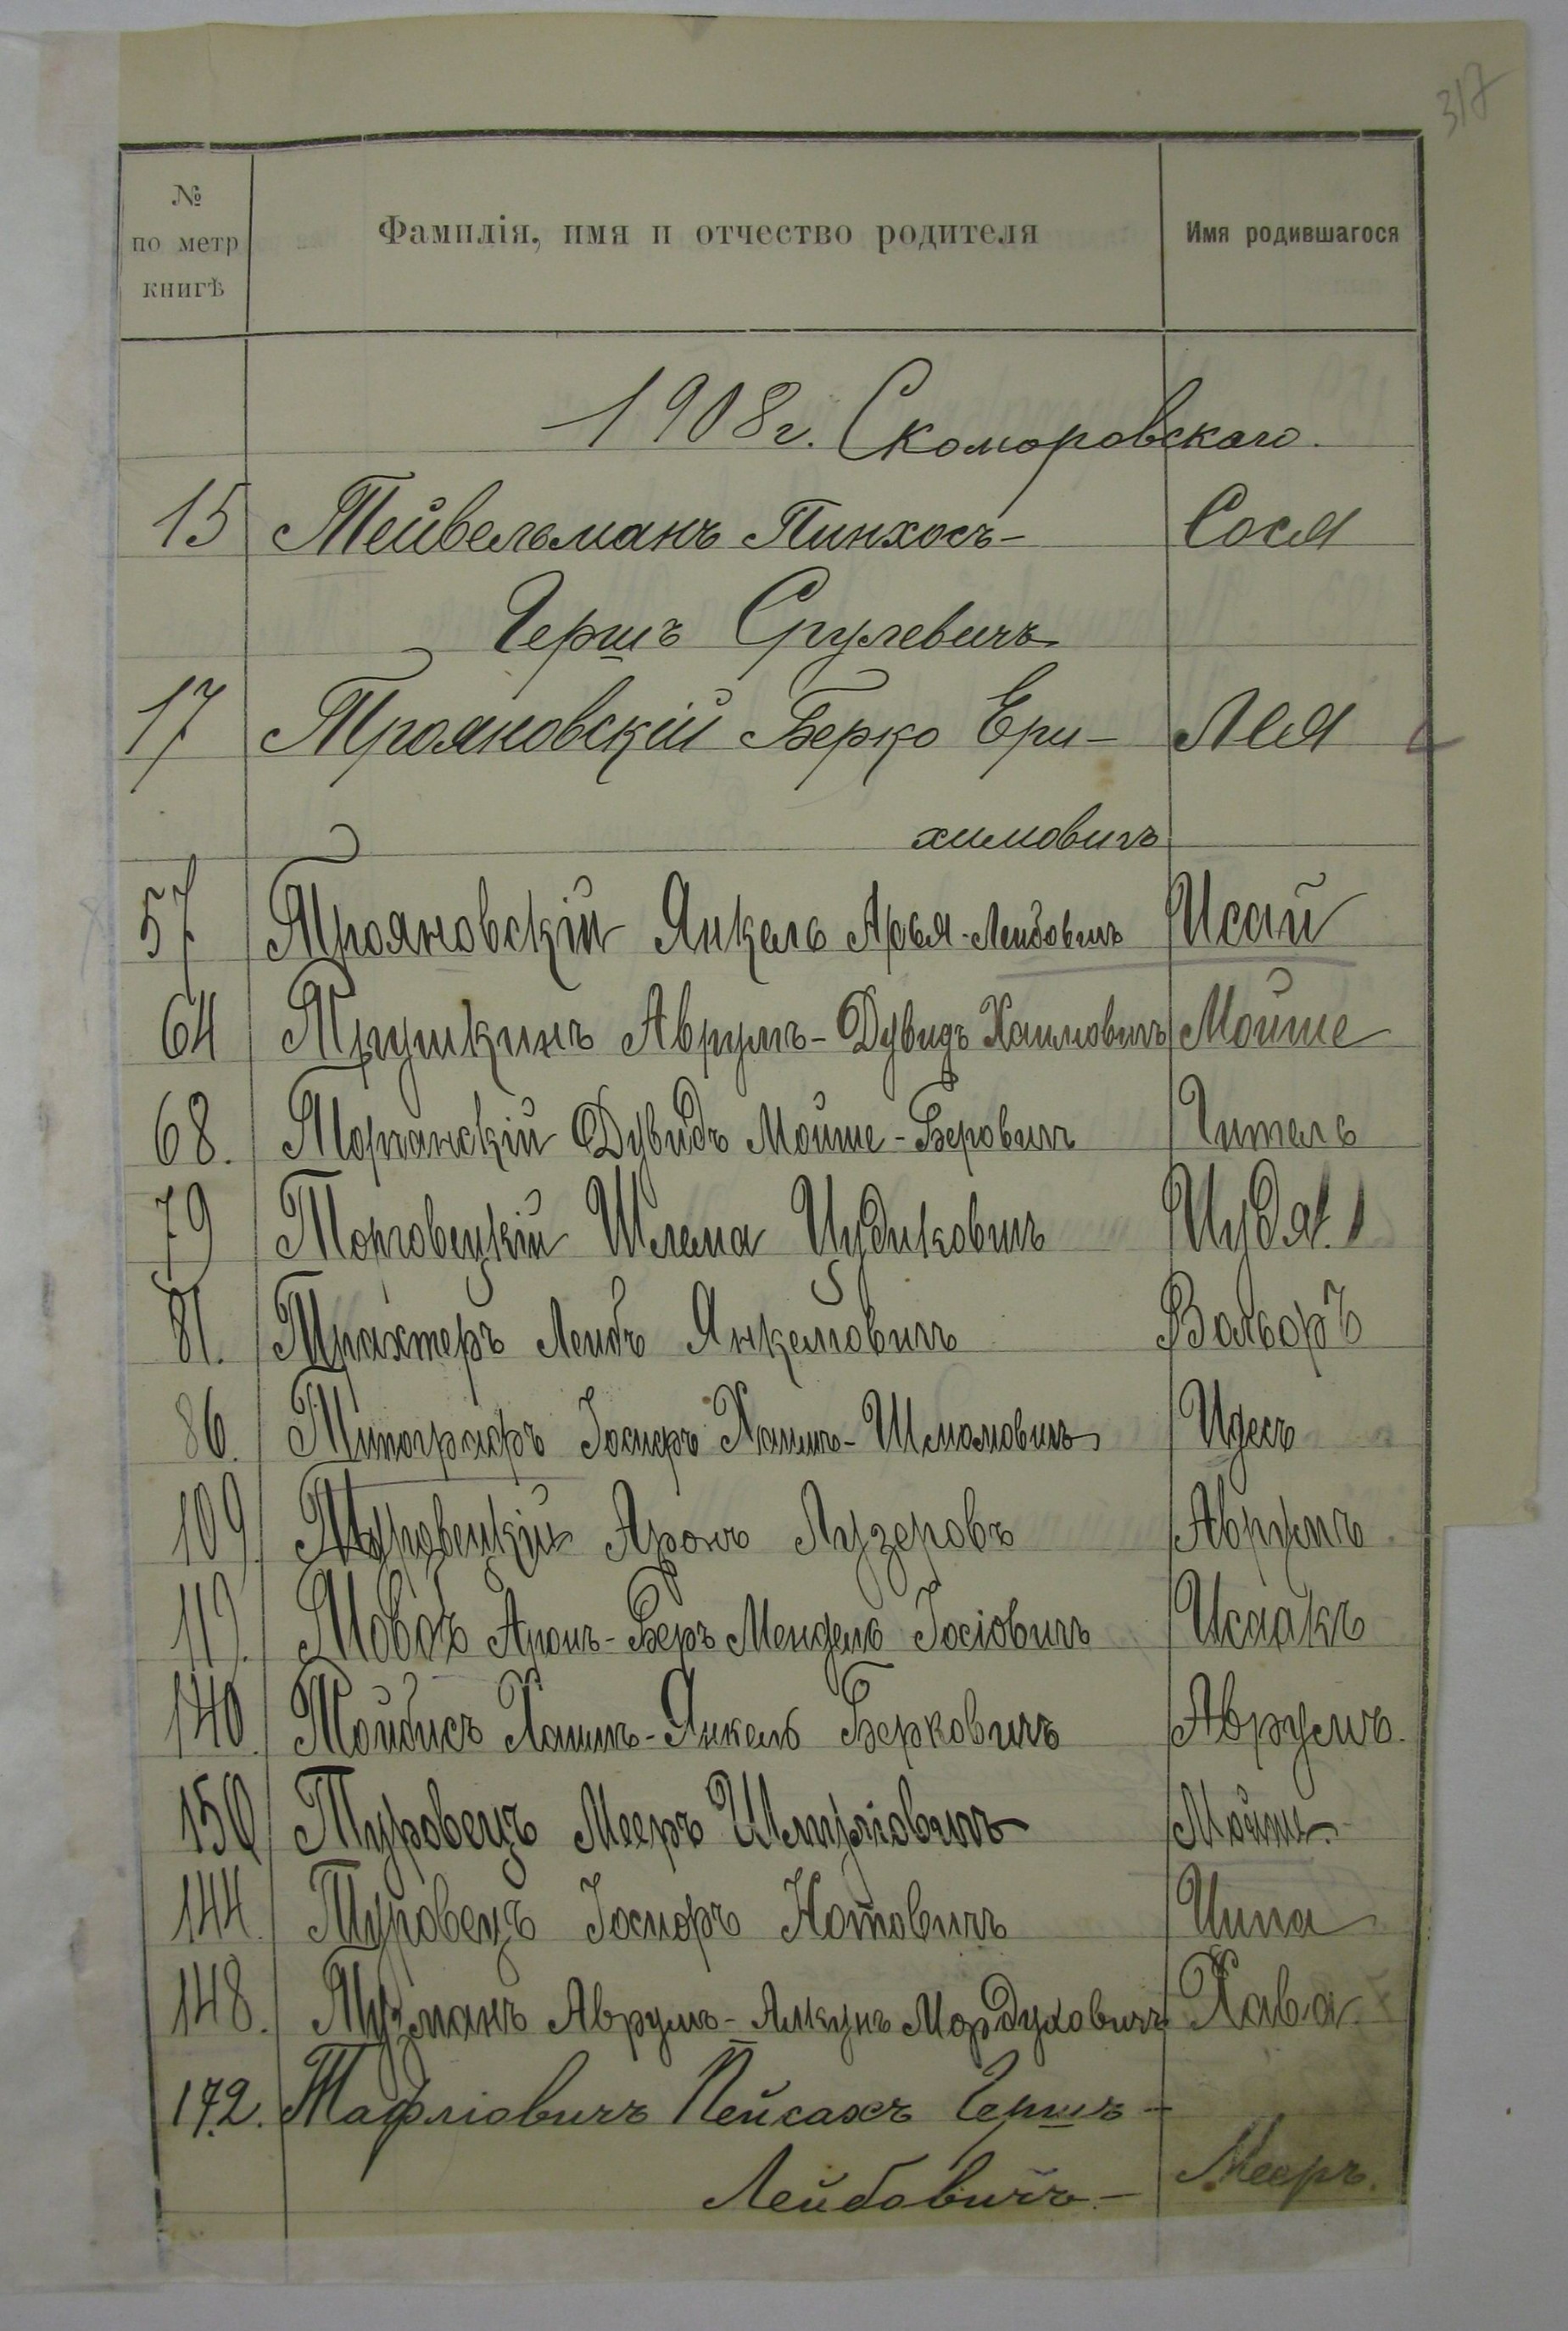 317
№ по метр книгѣ Фамилія, имя и отчество родителя Имя родившагося
1908 г. Скоморовскаго.
15 Тейвельманъ Пинхосъ- Сося
Гершъ Срулевичъ
17 Трояновскій Берко Ери- Лея
химовичъ
57 Трояновскій Янкель Арья-Лейбовичъ Исай
64 Трушкинъ Аврумъ-Дувидъ Хаимовичъ Мойше
68. Торганскій Дувидъ Мойше-Беровичъ Гитель
79 Торговецкій Шлема Иудковичъ Иуда
81. Трахтеръ Лейбъ Янкелювичъ Вольфъ
86. Типографъ Іосифъ Хаимъ-Шмоловичъ Идесъ
109. Туровецкій Аронъ Лузеровъ Аврумъ
119. Товбъ Аронъ-Беръ Мендель Іосіовичъ Исаакъ
140. Тойбисъ Хаимъ-Янкель Берковичъ Аврумъ.
150 Туровецъ Мееръ Мойше.
144. Туровецъ Іосифъ Нотовичъ Ципа
148. Тузманъ Аврумъ-Алкунъ Мордуховичъ Хава
172. Тафліовичъ Пейсахъ Гершъ-
Лейбовичъ- Мееръ.